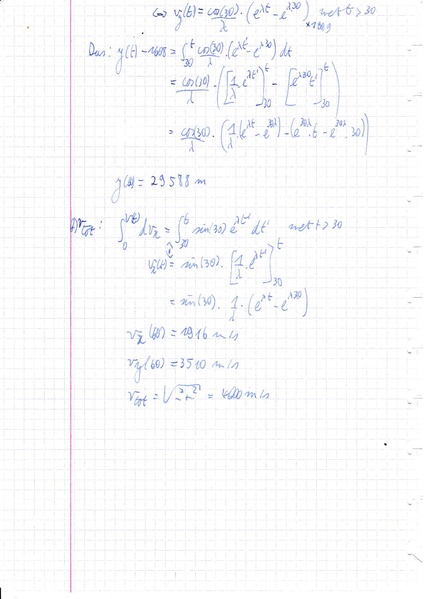 ⇔ v_y(t) = cos(30)/λ · (e^{λt} - e^{λ30}) met t > 30
Dus: y(t) - 1608 = ∫_{30}^{t} cos(30)/λ · (e^{λt} - e^{λ30}) dt
= cos(30)/λ · ([1/λ e^{λt'}]_{30}^{t} - [e^{λ30} t']_{30}^{t})
= cos(30)/λ · (1/λ (e^{λt} - e^{30λ}) - (e^{30λ} · t - e^{30λ} · 30))
y(60) = 29588 m
v_tot: ∫_{0}^{v(t)} dv_x = ∫_{30}^{t} sin(30) e^{λt'} dt' met t > 30
v_x(t) = sin(30) · [1/λ · e^{λt'}]_{30}^{t}
= sin(30) · 1/λ · (e^{λt} - e^{λ30})
v_x(60) = 1916 m/s
v_y(60) = 3510 m/s
v_tot = √(² + ²) = 4000 m/s